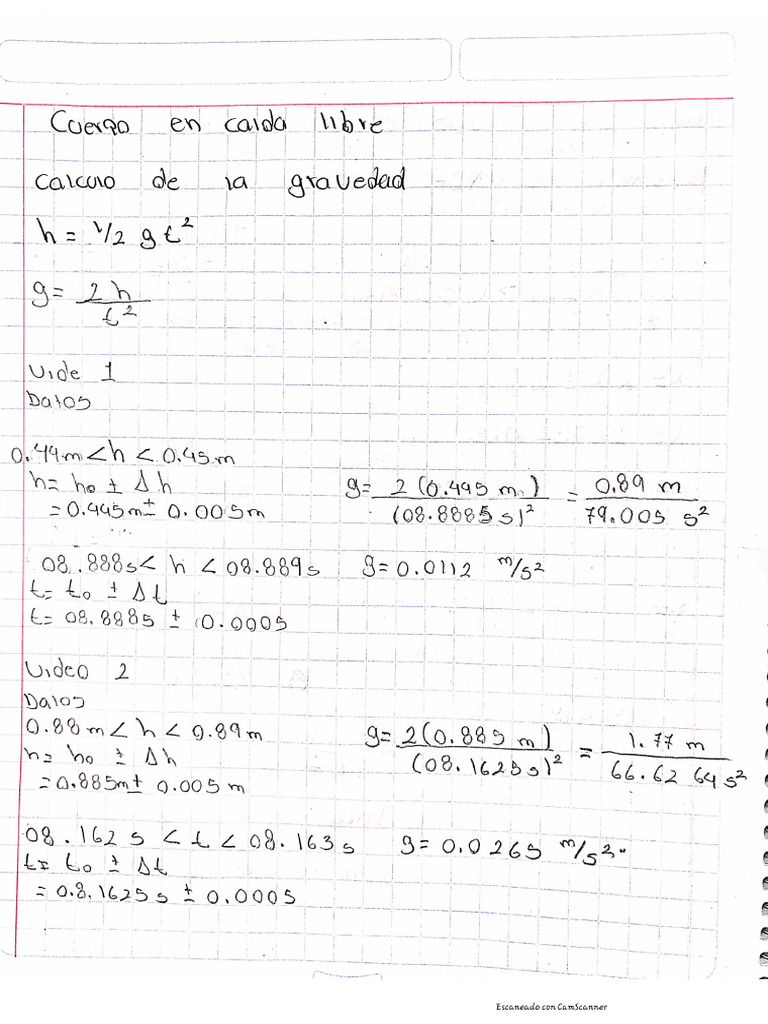 Cuerpo en caida libre
Calculo de la gravedad
h = 1/2 g t²
g = 2h / t²
Vide 1
Datos
0.44m < h < 0.45m
h = h₀ ± Δh
= 0.445m ± 0.005m
g = 2 (0.445 m) / (08.8885 s)² = 0.89 m / 79.005 s²
08.888s < h < 08.889s
g = 0.0112 m/s²
t = t₀ ± Δt
t = 08.8885 ± 0.0005
Video 2
Datos
0.88m < h < 0.89m
h = h₀ ± Δh
= 0.885m ± 0.005m
g = 2(0.885 m) / (08.1625s)² = 1.77 m / 66.62 64 s²
08.162 s < t < 08.163s
g = 0.0265 m/s²
t = t₀ ± Δt
= 0.8.1625s ± 0.0005
Escaneado con CamScanner